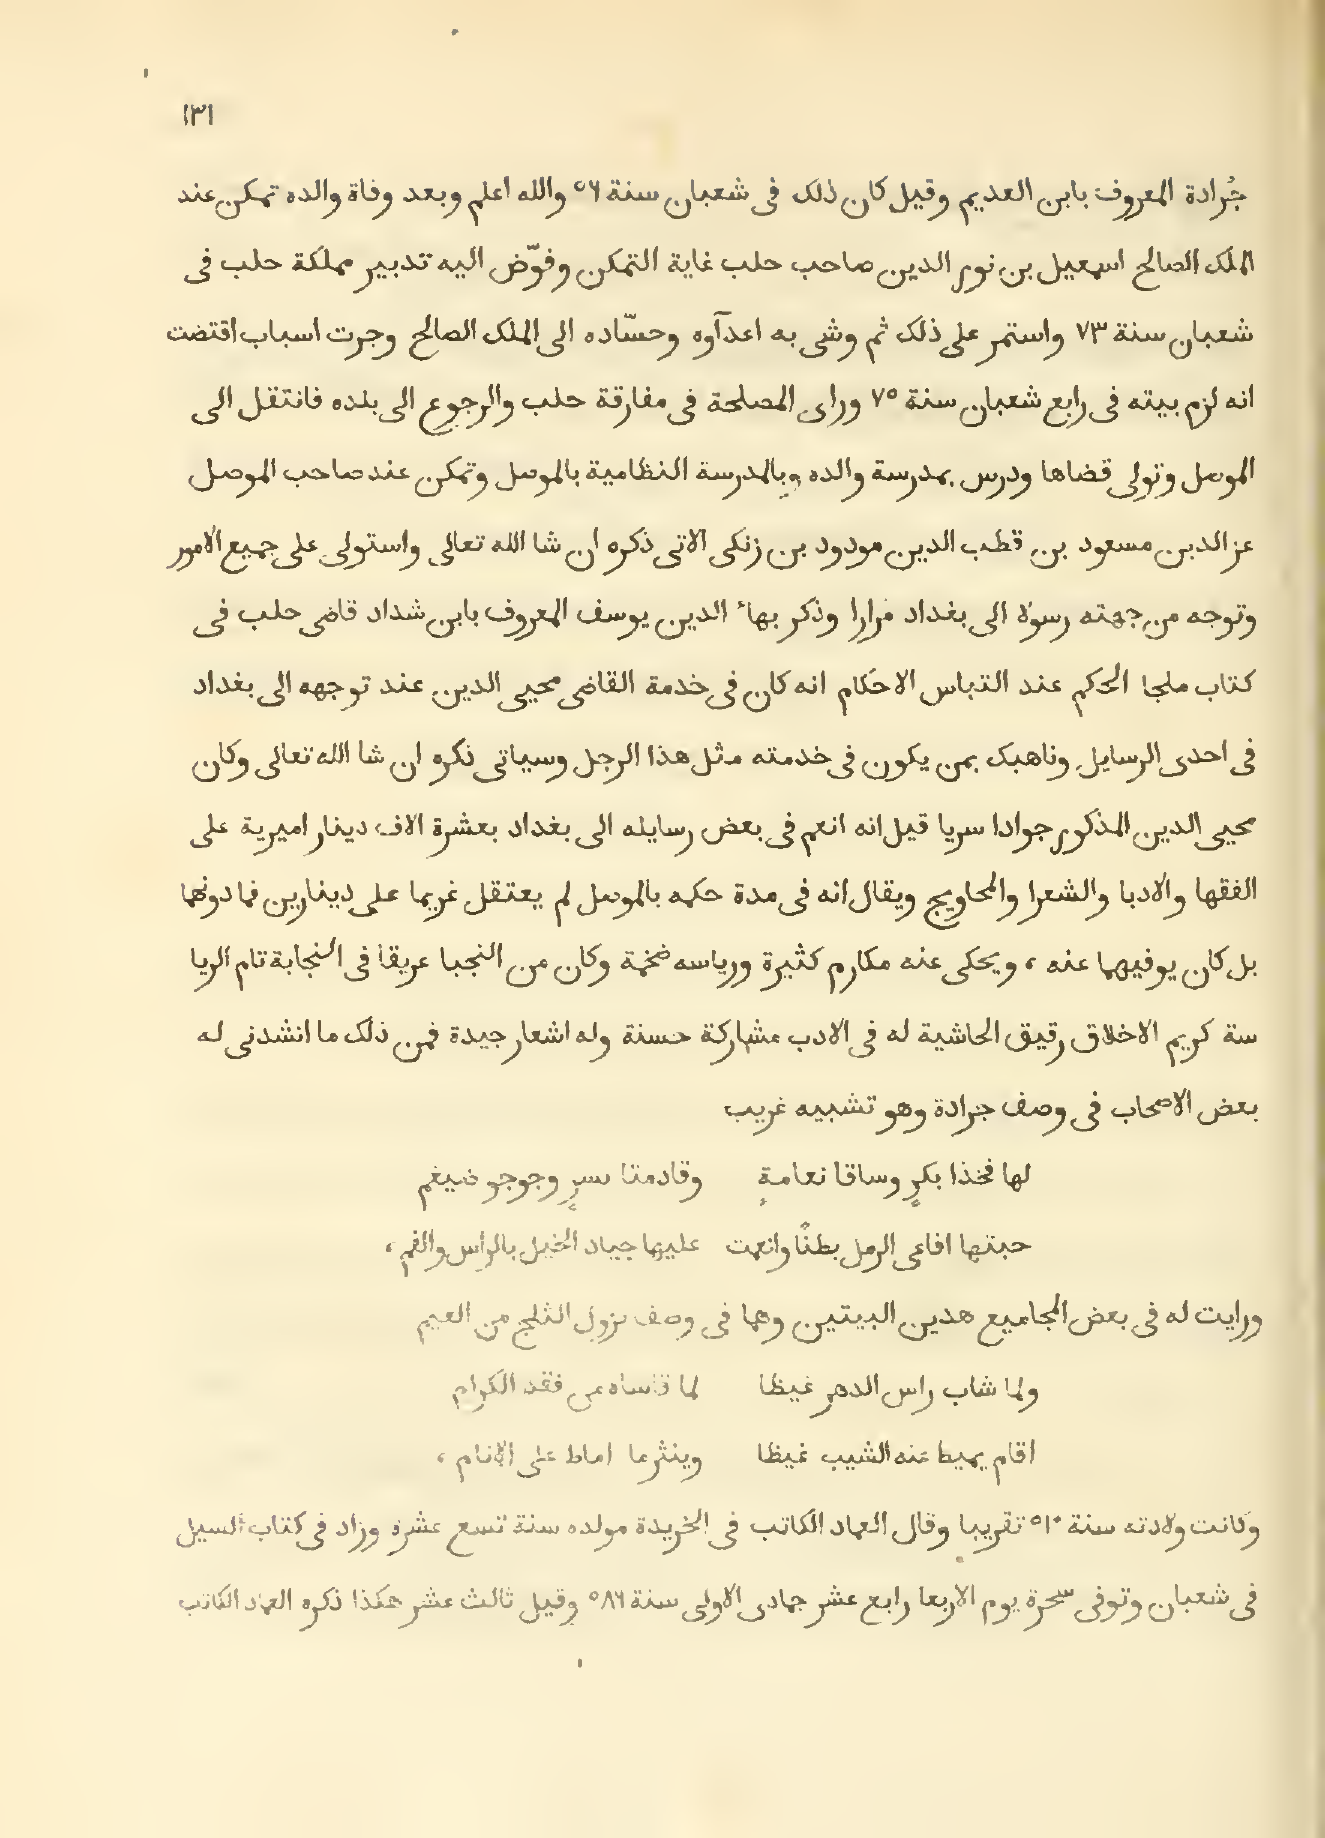 ١٣١
جُرادة المعروف بابن العديم وقيل كان ذلك فى شعبان سنة ٥٦ والله اعلم وبعد وفاة والده تمكن عند
الملك الصالح اسمعيل بن نور الدين صاحب حلب غاية التمكن وفوّض اليه تدبير مملكة حلب فى
شعبان سنة ٧٣ واستمر على ذلك ثم وشى به اعدآوه وحسّاده الى الملك الصالح وجرت اسباب اقتضت
انه لزم بيته فى رابع شعبان سنة ٧٥ وراى المصلحة فى مفارقة حلب والرجوع الى بلده فانتقل الى
الموصل وتولى قضاها ودرس بمدرسة والده وبالمدرسة النظامية بالموصل وتمكن عند صاحب الموصل
عز الدين مسعود بن قطب الدين مودود بن زنكى الاتى ذكره ان شا الله تعالى واستولى على جميع الامور
وتوجه من جهته رسولا الى بغداد مرارا وذكر بهاء الدين يوسف المعروف بابن شداد قاضى حلب فى
كتاب ملجا الحكم عند التباس الاحكام انه كان فى خدمة القاضى محيى الدين عند توجهه الى بغداد
فى احدى الرسايل وناهيك بمن يكون فى خدمته مثل هذا الرجل وسياتى ذكره ان شا الله تعالى وكان
محيى الدين المذكور جوادا سريا قيل انه انعم فى بعض رسايله الى بغداد بعشرة الاف دينار اميرية على
الفقها والادبا والشعرا والمحاويج ويقال انه فى مدة حكمه بالموصل لم يعتقل غريما على دينارين فما دونها
بل كان يوفيهما عنه ، ويحكى عنه مكارم كثيرة ورياسه ضخمة وكان من النجبا عريقا فى النجابة تام الريا
سة كريم الاخلاق رقيق الحاشية له فى الادب مشاركة حسنة وله اشعار جيدة فمن ذلك ما انشدنى له
بعض الاصحاب فى وصف جرادة وهو تشبيه غريب
لها فخذا بكرٍ وساقا نعامةٍ وقادمتا نسرٍ وجوجو ضيغم
حبتها افاعى الرمل بطنًا وانعمت عليها جياد الخيل بالراس والفم ،
ورايت له فى بعض المجاميع هذين البيتين وهما فى وصف نزول الثلج من الغيم
ولما شاب راس الدهر غيظا لما قاساه من فقد الكرام
اقام يميط عنه الشيب غيظا وينثر ما اماط على الانام ،
وكانت ولادته سنة ٥١٠ تقريبا وقال العماد الكاتب فى الخريدة مولده سنة تسع عشرة وزاد فى كتاب السيل
فى شعبان وتوفى سحرة يوم الاربعا رابع عشر جمادى الاولى سنة ٥٨٦ وقيل ثالث عشر هكذا ذكره العماد الكاتب